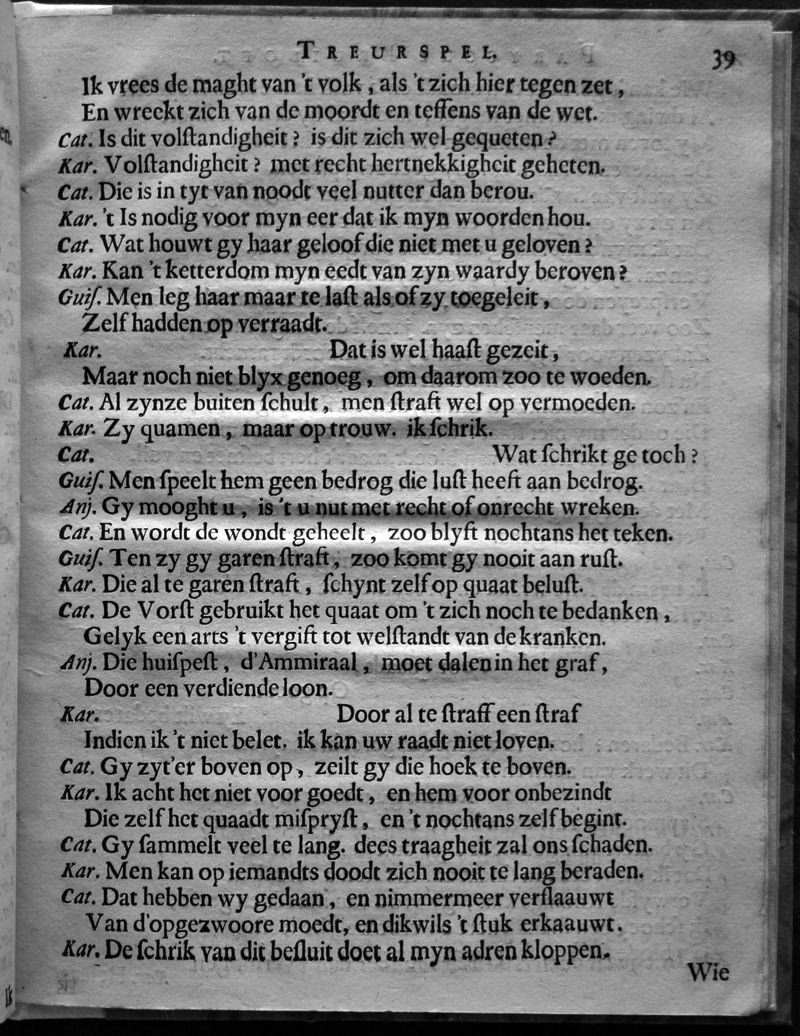 TREURSPEL, 39
Ik vrees de maght van 't volk, als 't zich hier tegen zet,
En wreekt zich van de moordt en teſſens van de wet.
Cat. Is dit volſtandigheit? is dit zich wel gequeten?
Kar. Volſtandigheit? met recht hertnekkigheit geheten.
Cat. Die is in tyt van noodt veel nutter dan berou.
Kar. 't Is nodig voor myn eer dat ik myn woorden hou.
Cat. Wat houwt gy haar geloof die niet met u geloven?
Kar. Kan 't ketterdom myn eedt van zyn waardy beroven?
Guiſ. Men leg haar maar te laſt als of zy toegeleit,
Zelf hadden op verraadt.
Kar. Dat is wel haaſt gezeit,
Maar noch niet blyx genoeg, om daarom zoo te woeden.
Cat. Al zynze buiten ſchult, men ſtraft wel op vermoeden.
Kar. Zy quamen, maar op trouw. ik ſchrik.
Cat. Wat ſchrikt ge toch?
Guiſ. Men ſpeelt hem geen bedrog die luſt heeft aan bedrog.
Anj. Gy mooght u, is 't u nut met recht of onrecht wreken.
Cat. En wordt de wondt geheelt, zoo blyft nochtans het teken.
Guiſ. Ten zy gy garen ſtraft, zoo komt gy nooit aan ruſt.
Kar. Die al te garen ſtraft, ſchynt zelf op quaat beluſt.
Cat. De Vorſt gebruikt het quaat om 't zich noch te bedanken,
Gelyk een arts 't vergift tot welſtandt van de kranken.
Anj. Die huiſpeſt, d'Ammiraal, moet dalen in het graf,
Door een verdiende loon.
Kar. Door al te ſtraff een ſtraf
Indien ik 't niet belet. ik kan uw raadt niet loven.
Cat. Gy zyt'er boven op, zeilt gy die hoek te boven.
Kar. Ik acht het niet voor goedt, en hem voor onbezindt
Die zelf het quaadt miſpryſt, en 't nochtans zelf begint.
Cat. Gy ſammelt veel te lang. dees traagheit zal ons ſchaden.
Kar. Men kan op iemandts doodt zich nooit te lang beraden.
Cat. Dat hebben wy gedaan, en nimmermeer verflaauwt
Van d'opgezwoore moedt, en dikwils 't ſtuk erkaauwt.
Kar. De ſchrik van dit beſluit doet al myn adren kloppen.
Wie